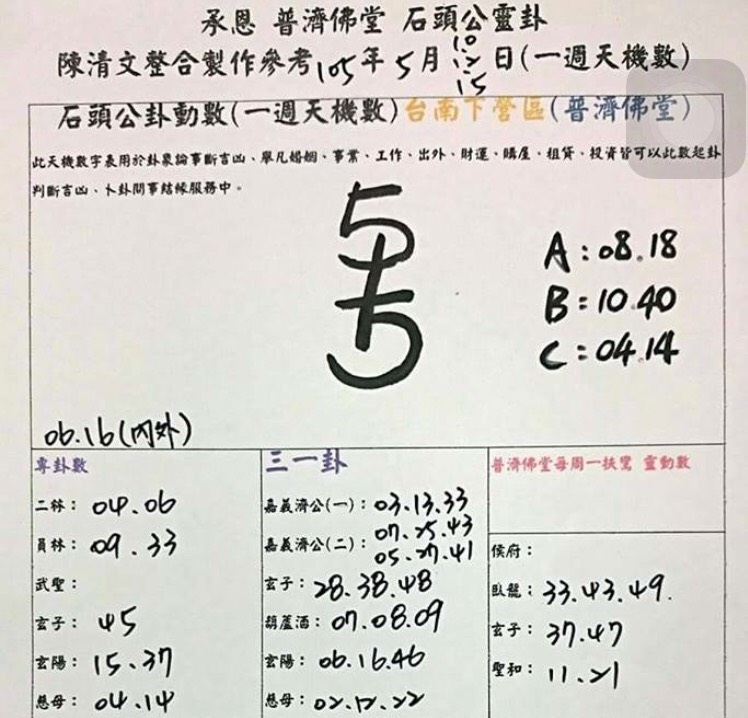 承恩 普濟佛堂 石頭公靈卦
陳清文整合製作參考105年5月10.12.15日(一週天機數)
石頭公卦動數(一週天機數)台南下營區(普濟佛堂)
此天機數字表用於卦象論事斷吉凶、舉凡婚姻、事業、工作、出外、財運、購屋、租賃、投資皆可以此數起卦
判斷吉凶、卜卦問事結緣服務中。
A:08.18
B:10.40
C:04.14
06.16(內外)
專卦數
二林: 04.06
員林: 09.33
武聖:
玄子: 45
玄陽: 15.37
慈母: 04.14
三一卦
嘉義濟公(一): 03.13.33
嘉義濟公(二): 07.25.43
05.27.41
玄子: 28.38.48
葫蘆酒: 07.08.09
玄陽: 06.16.46
慈母: 02.12.22
普濟佛堂每周一扶鸞 靈動數
侯府:
臥龍: 33.43.49.
玄子: 37.47
聖和: 11.21